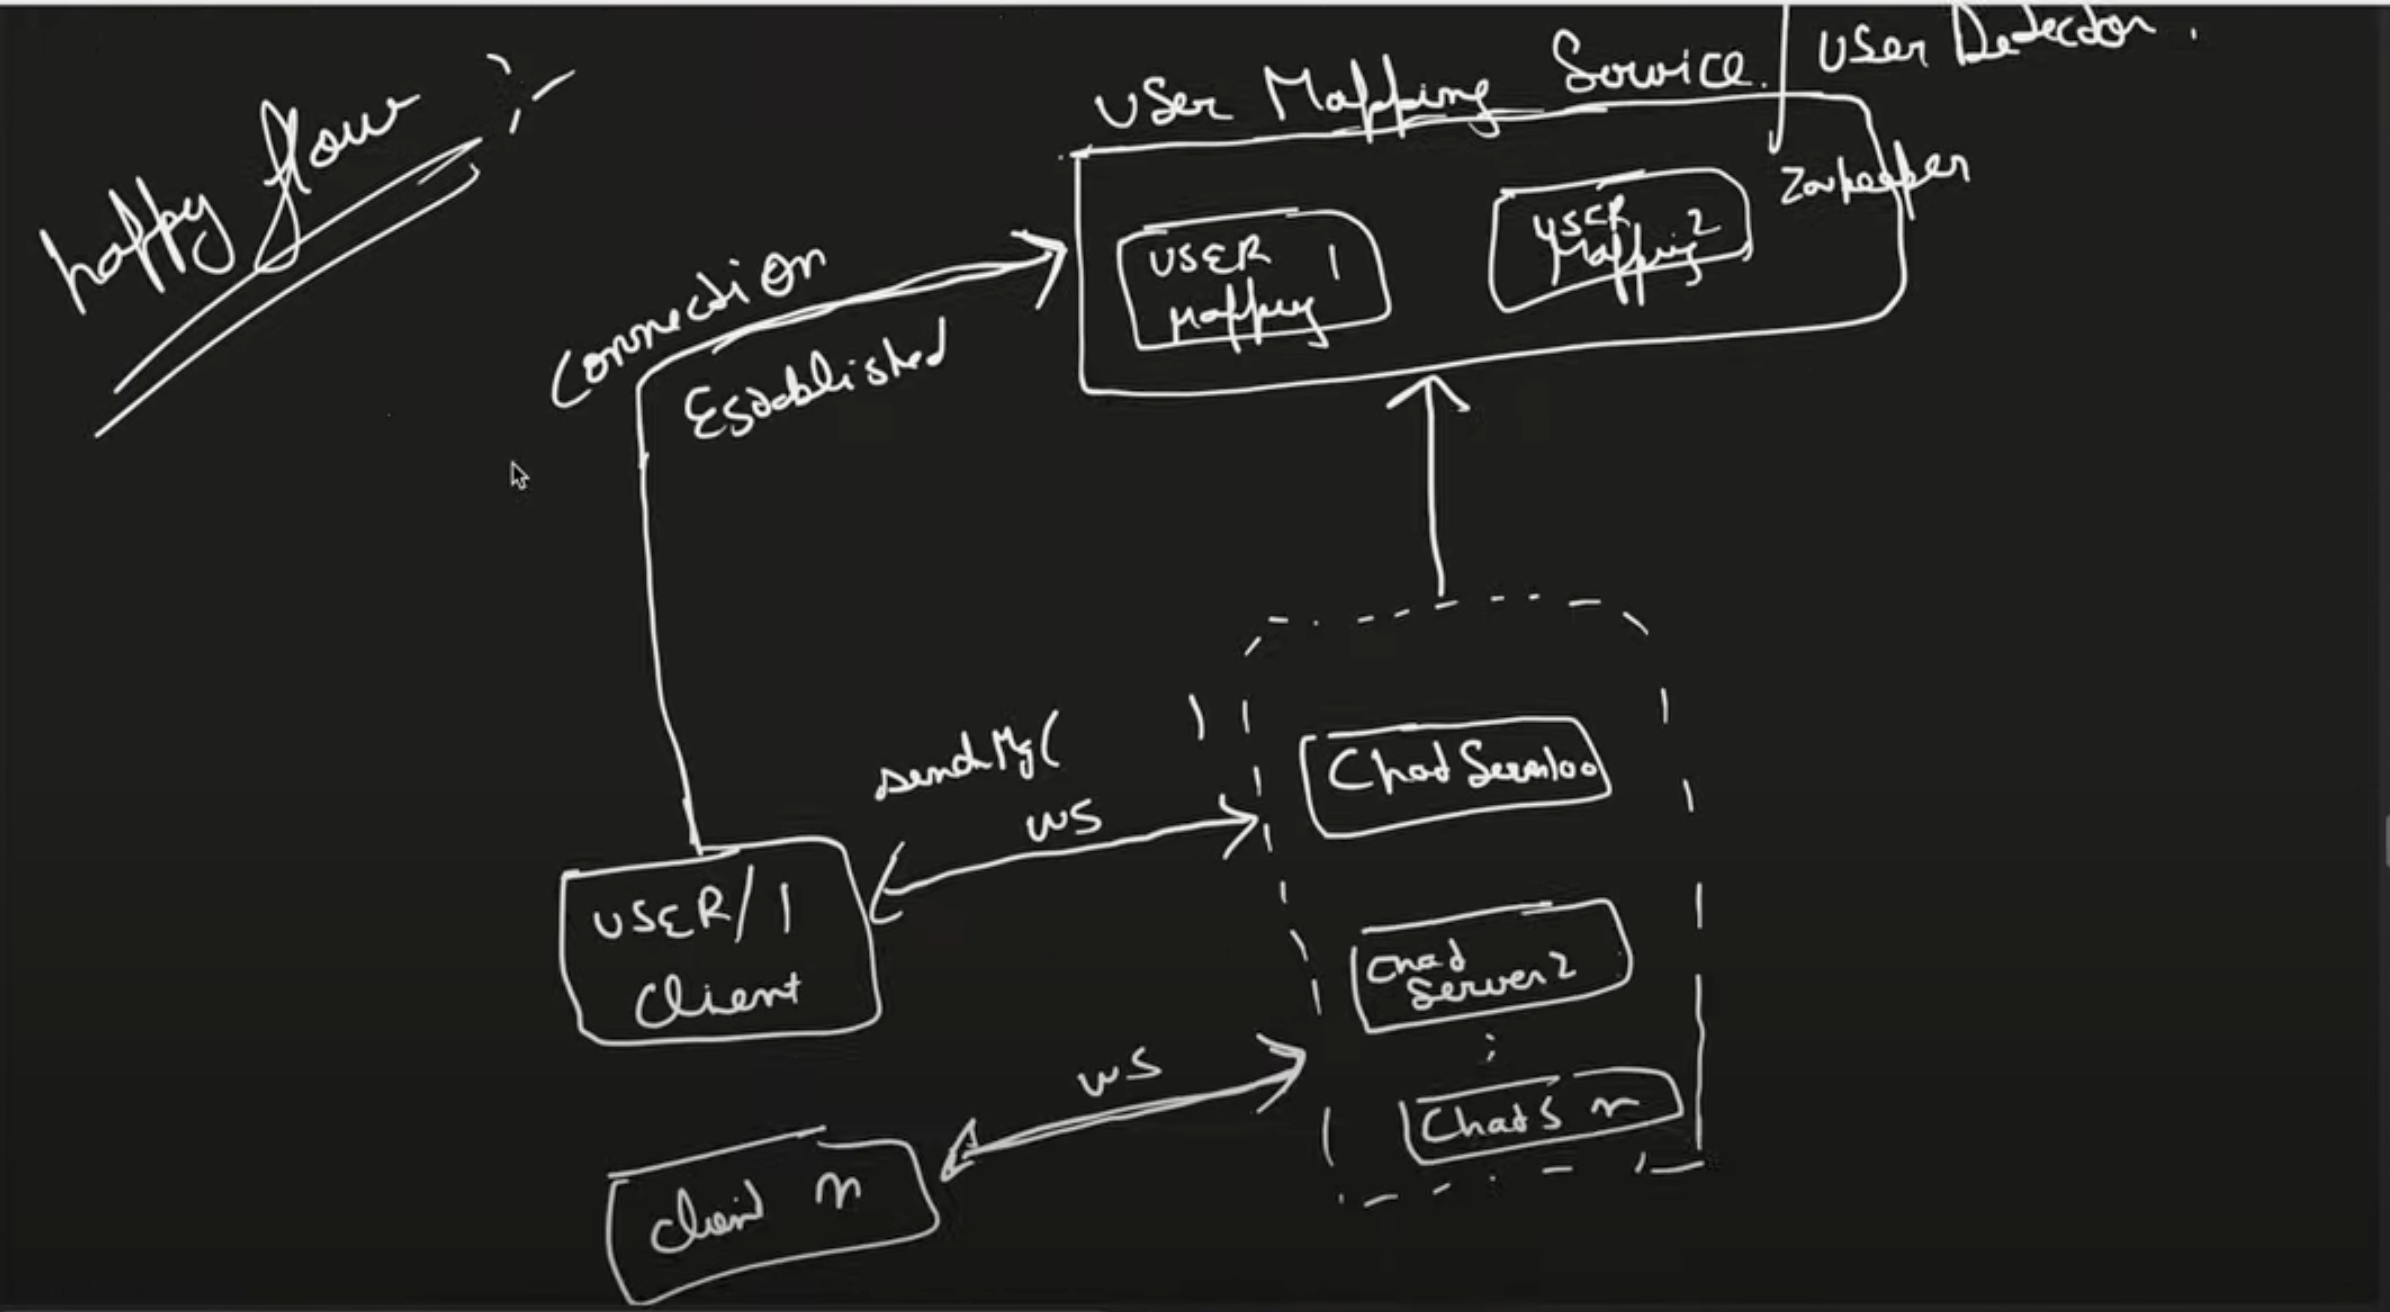 happy flow :-
User Mapping Service. / User Detector.
Zookeeper
USER 1
Mapping
USER 2
Mapping
Connection
Established
sendMg( )
WS
Chat Server100
USER/1
Client
Chat
Server 2
WS
Chat S n
Client n